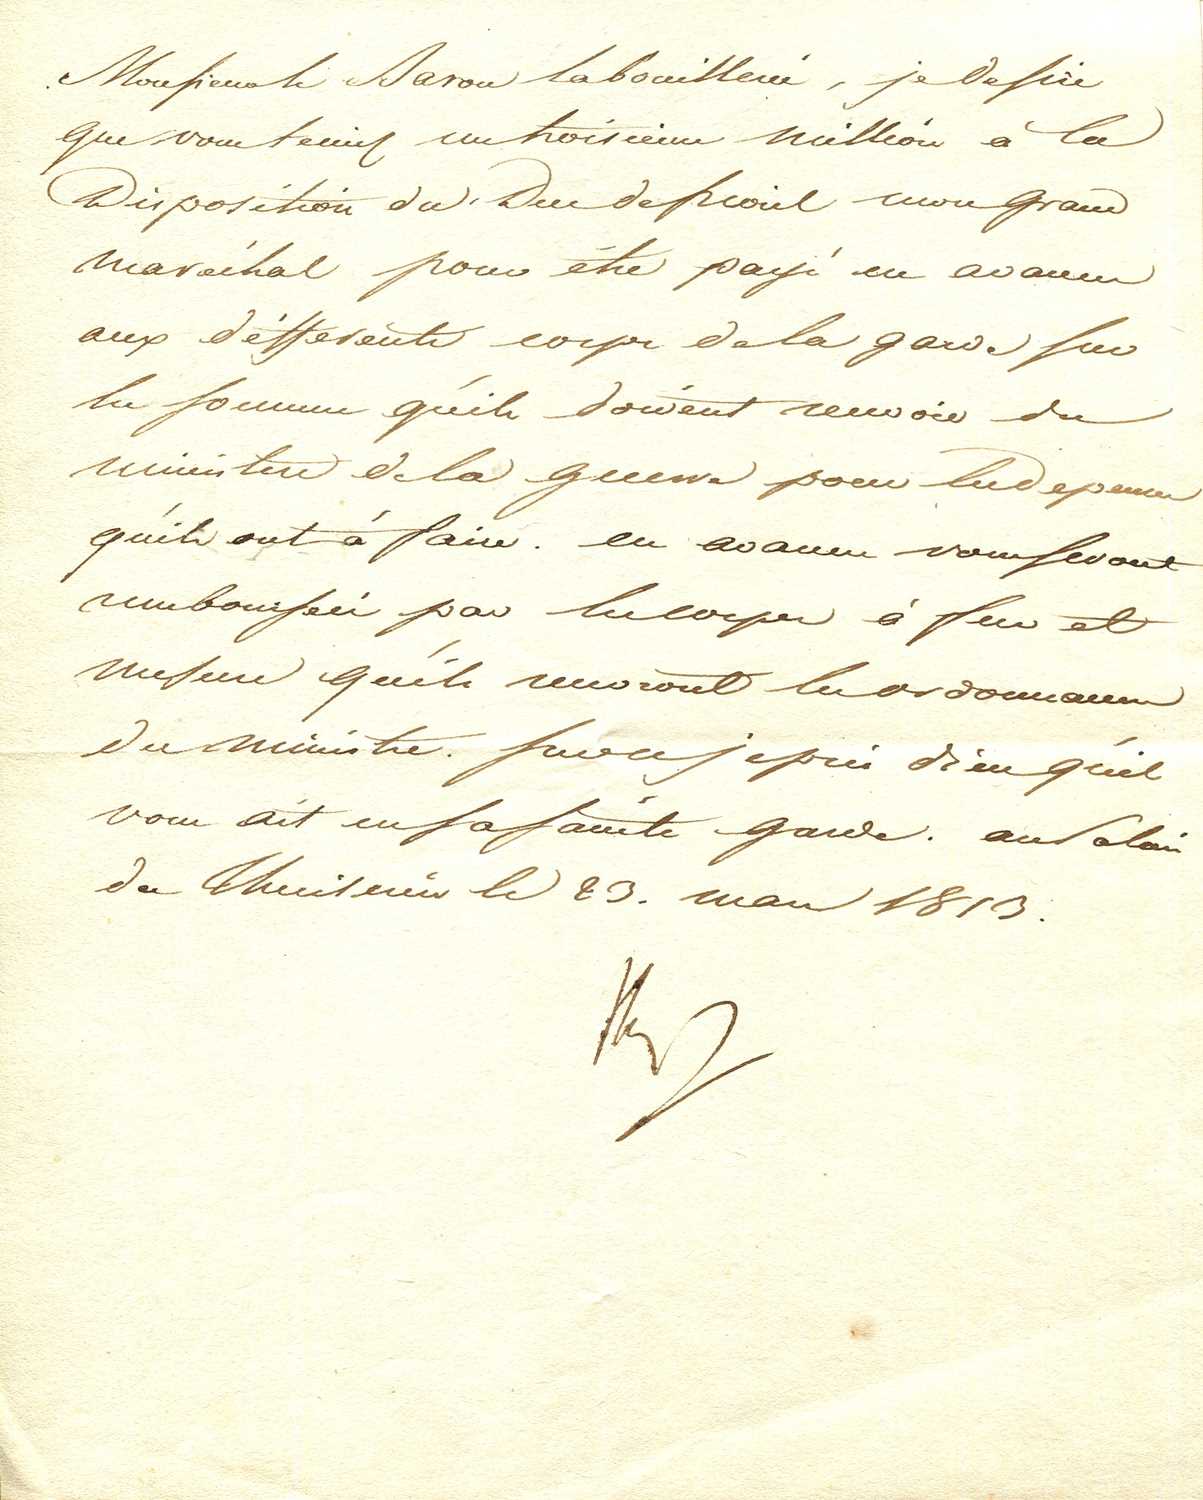 Monsieur le Baron Labouillerie, je desire
que vous teniez un troisieme million à la
Disposition du Duc de frioul mon grand
maréchal pour être payé en avance
aux différents corps de la garde sur
les sommes qu'ils doivent recevoir du
ministere de la guerre pour les depenses
qu'ils ont à faire. ces avances vous seront
remboursées par les corps à fur et
mesure qu'ils recevront les ordonnances
du ministre. sur ce je prie dieu qu'il
vous ait en sa sainte garde. au Palais
de Thuileries le 23. mars 1813.